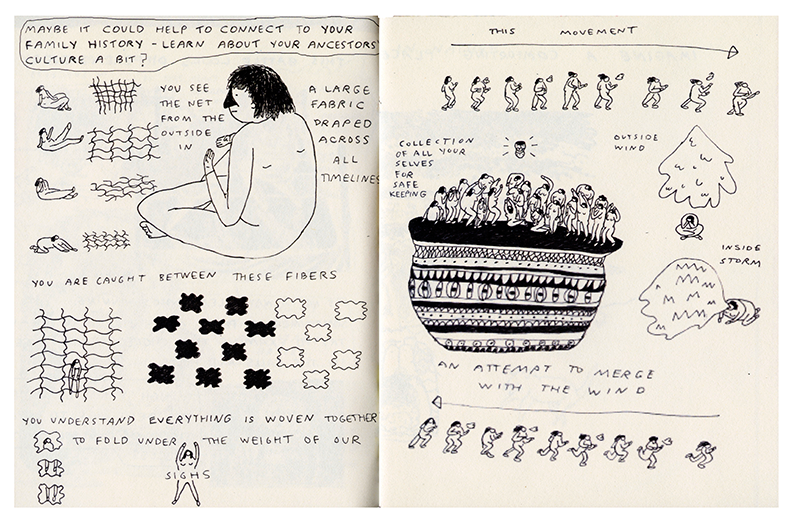 MAYBE IT COULD HELP TO CONNECT TO YOUR
FAMILY HISTORY - LEARN ABOUT YOUR ANCESTORS'
CULTURE A BIT?
YOU SEE
THE NET
FROM THE
OUTSIDE
IN
A LARGE
FABRIC
DRAPED
ACROSS
ALL
TIMELINES
YOU ARE CAUGHT BETWEEN THESE FIBERS
YOU UNDERSTAND EVERYTHING IS WOVEN TOGETHER
TO FOLD UNDER THE WEIGHT OF OUR
SIGHS
THIS MOVEMENT
COLLECTION
OF ALL YOUR
SELVES
FOR
SAFE
KEEPING
OUTSIDE
WIND
INSIDE
STORM
AN ATTEMPT TO MERGE
WITH THE WIND